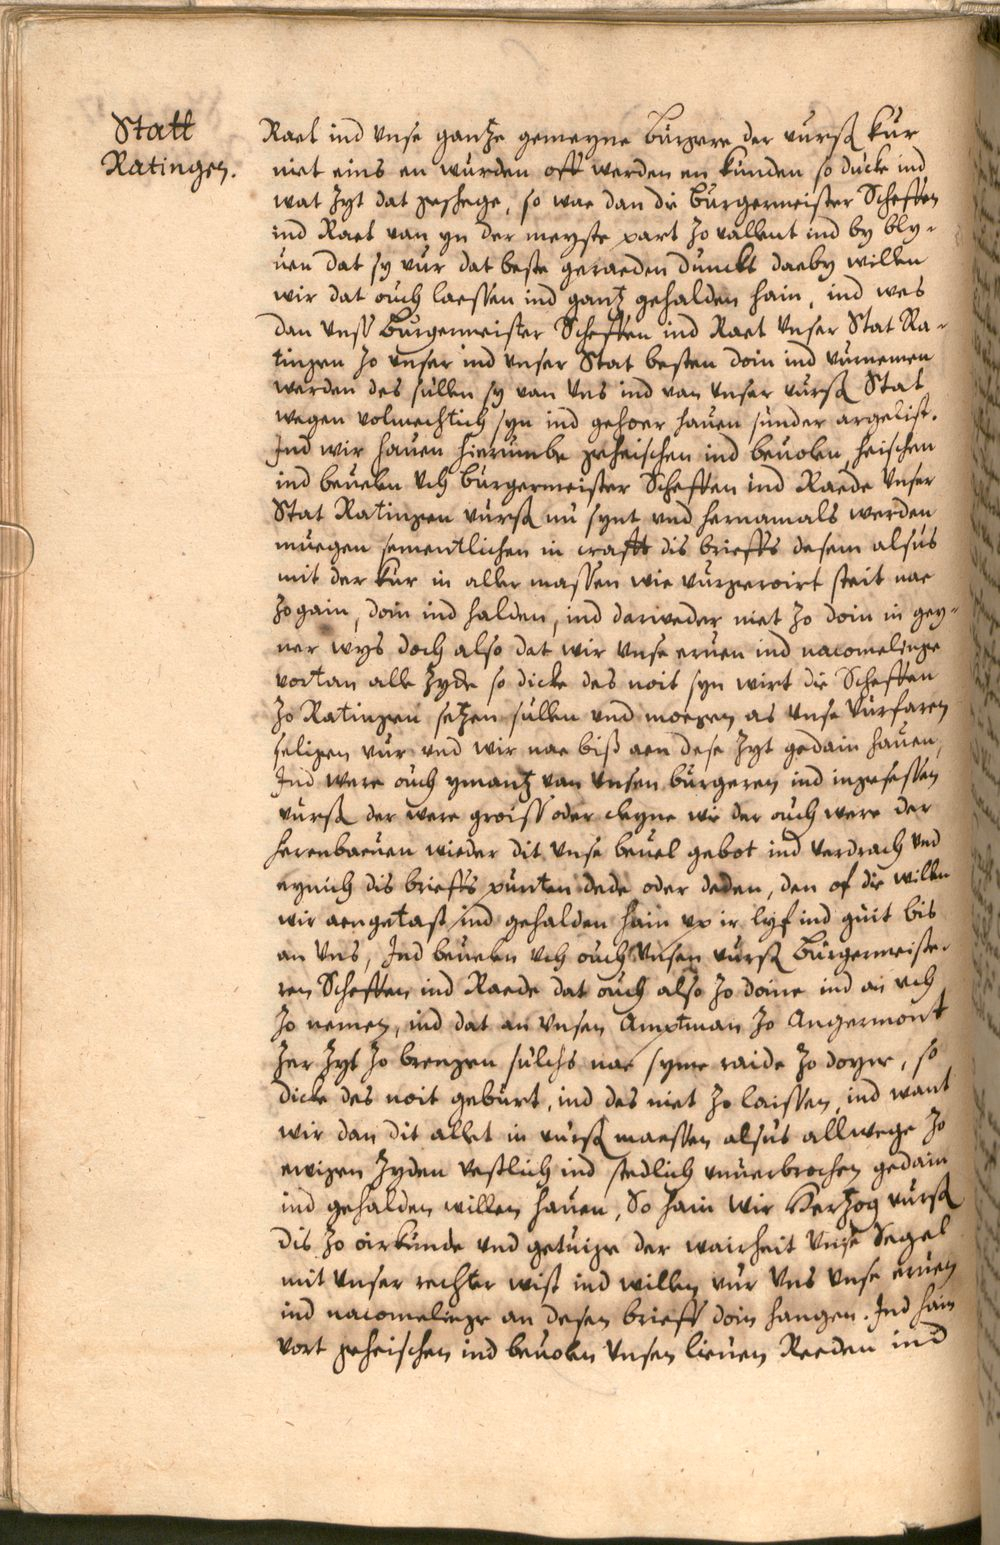 Statt
Ratingen.
Raet ind vnse gantze gemeyne Burgere der vurß kur
niet eins en wurden off werden en kunden so ducke ind
wat zyt dat geschege, so wae dan die Burgermeister Scheffen
ind Raet van yn der meyste part zo vallent ind by bly-
uen dat sy vur dat beste geraeden dunckt daeby willen
wir dat ouch laessen ind gantz gehalden hain, ind wes
dan vnss Burgermeister Scheffen ind Raet vnser Stat Ra-
tingen zo vnser ind vnser Stat besten doin ind vurnemen
werden des sullen sy van vns ind van vnser vurß Stat
wegen volmechtich syn ind gehoer hauen sunder argelist.
Ind wir hauen hierumbe geheischen ind beuolen, heischen
ind beuelen vch Burgermeister Scheffen ind Raede vnser
Stat Ratingen vurß nu synt vnd hernamals werden
muegen sementlichen in crafft dis brieffs desem alsus
mit der kur in aller maessen wie vurgeroirt steit nae
zogain, doin ind halden, ind darweder niet zo doin in gey-
ner wys doch also dat wir vnse eruen ind nacomelinge
vortan alle zyde so dicke des noit syn wirt die Scheffen
zo Ratingen setzen sullen vnd moegen as vnse vurfaren
seligen vur vnd wir nae biß aen dese zyt gedain hauen,
Ind were ouch ymantz van vnsen burgeren ind ingesessen
vurß der were groiss oder cleyne wie der ouch were der
herenbaeuen wieder dit vnse beuel gebot ind verdrach vnd
eynich dis brieffs punten dede oder deden, den of die willen
wir aengetast ind gehalden hain vp ir lyf ind guit bis
an vns, Ind beuelen vch ouch vnsen vurß Burgermeiste-
ren Scheffen ind Raede dat ouch also zo doine ind an vch
zo nemen, ind dat an vnsen Amptman zo Angermont
zer zyt zo brengen sulchs nae syme raide zo doyn, so
dicke des noit geburt, ind des niet zo laissen, ind want
wir dan dit allet in vurß maessen alsus allwege zo
ewigen zyden vestlich ind stedlich vnuerbrochen gedain
ind gehalden willen hauen, So hain wir Hertzog vurß
dis zo oirkunde vnd getuige der wairheit vnse Segel
mit vnser rechter wist ind willen vur vns vnse eruen
ind nacomelinge an desen brieff doin hangen. Ind hain
vort geheischen ind beuolen vnsen lieuen Reeden ind